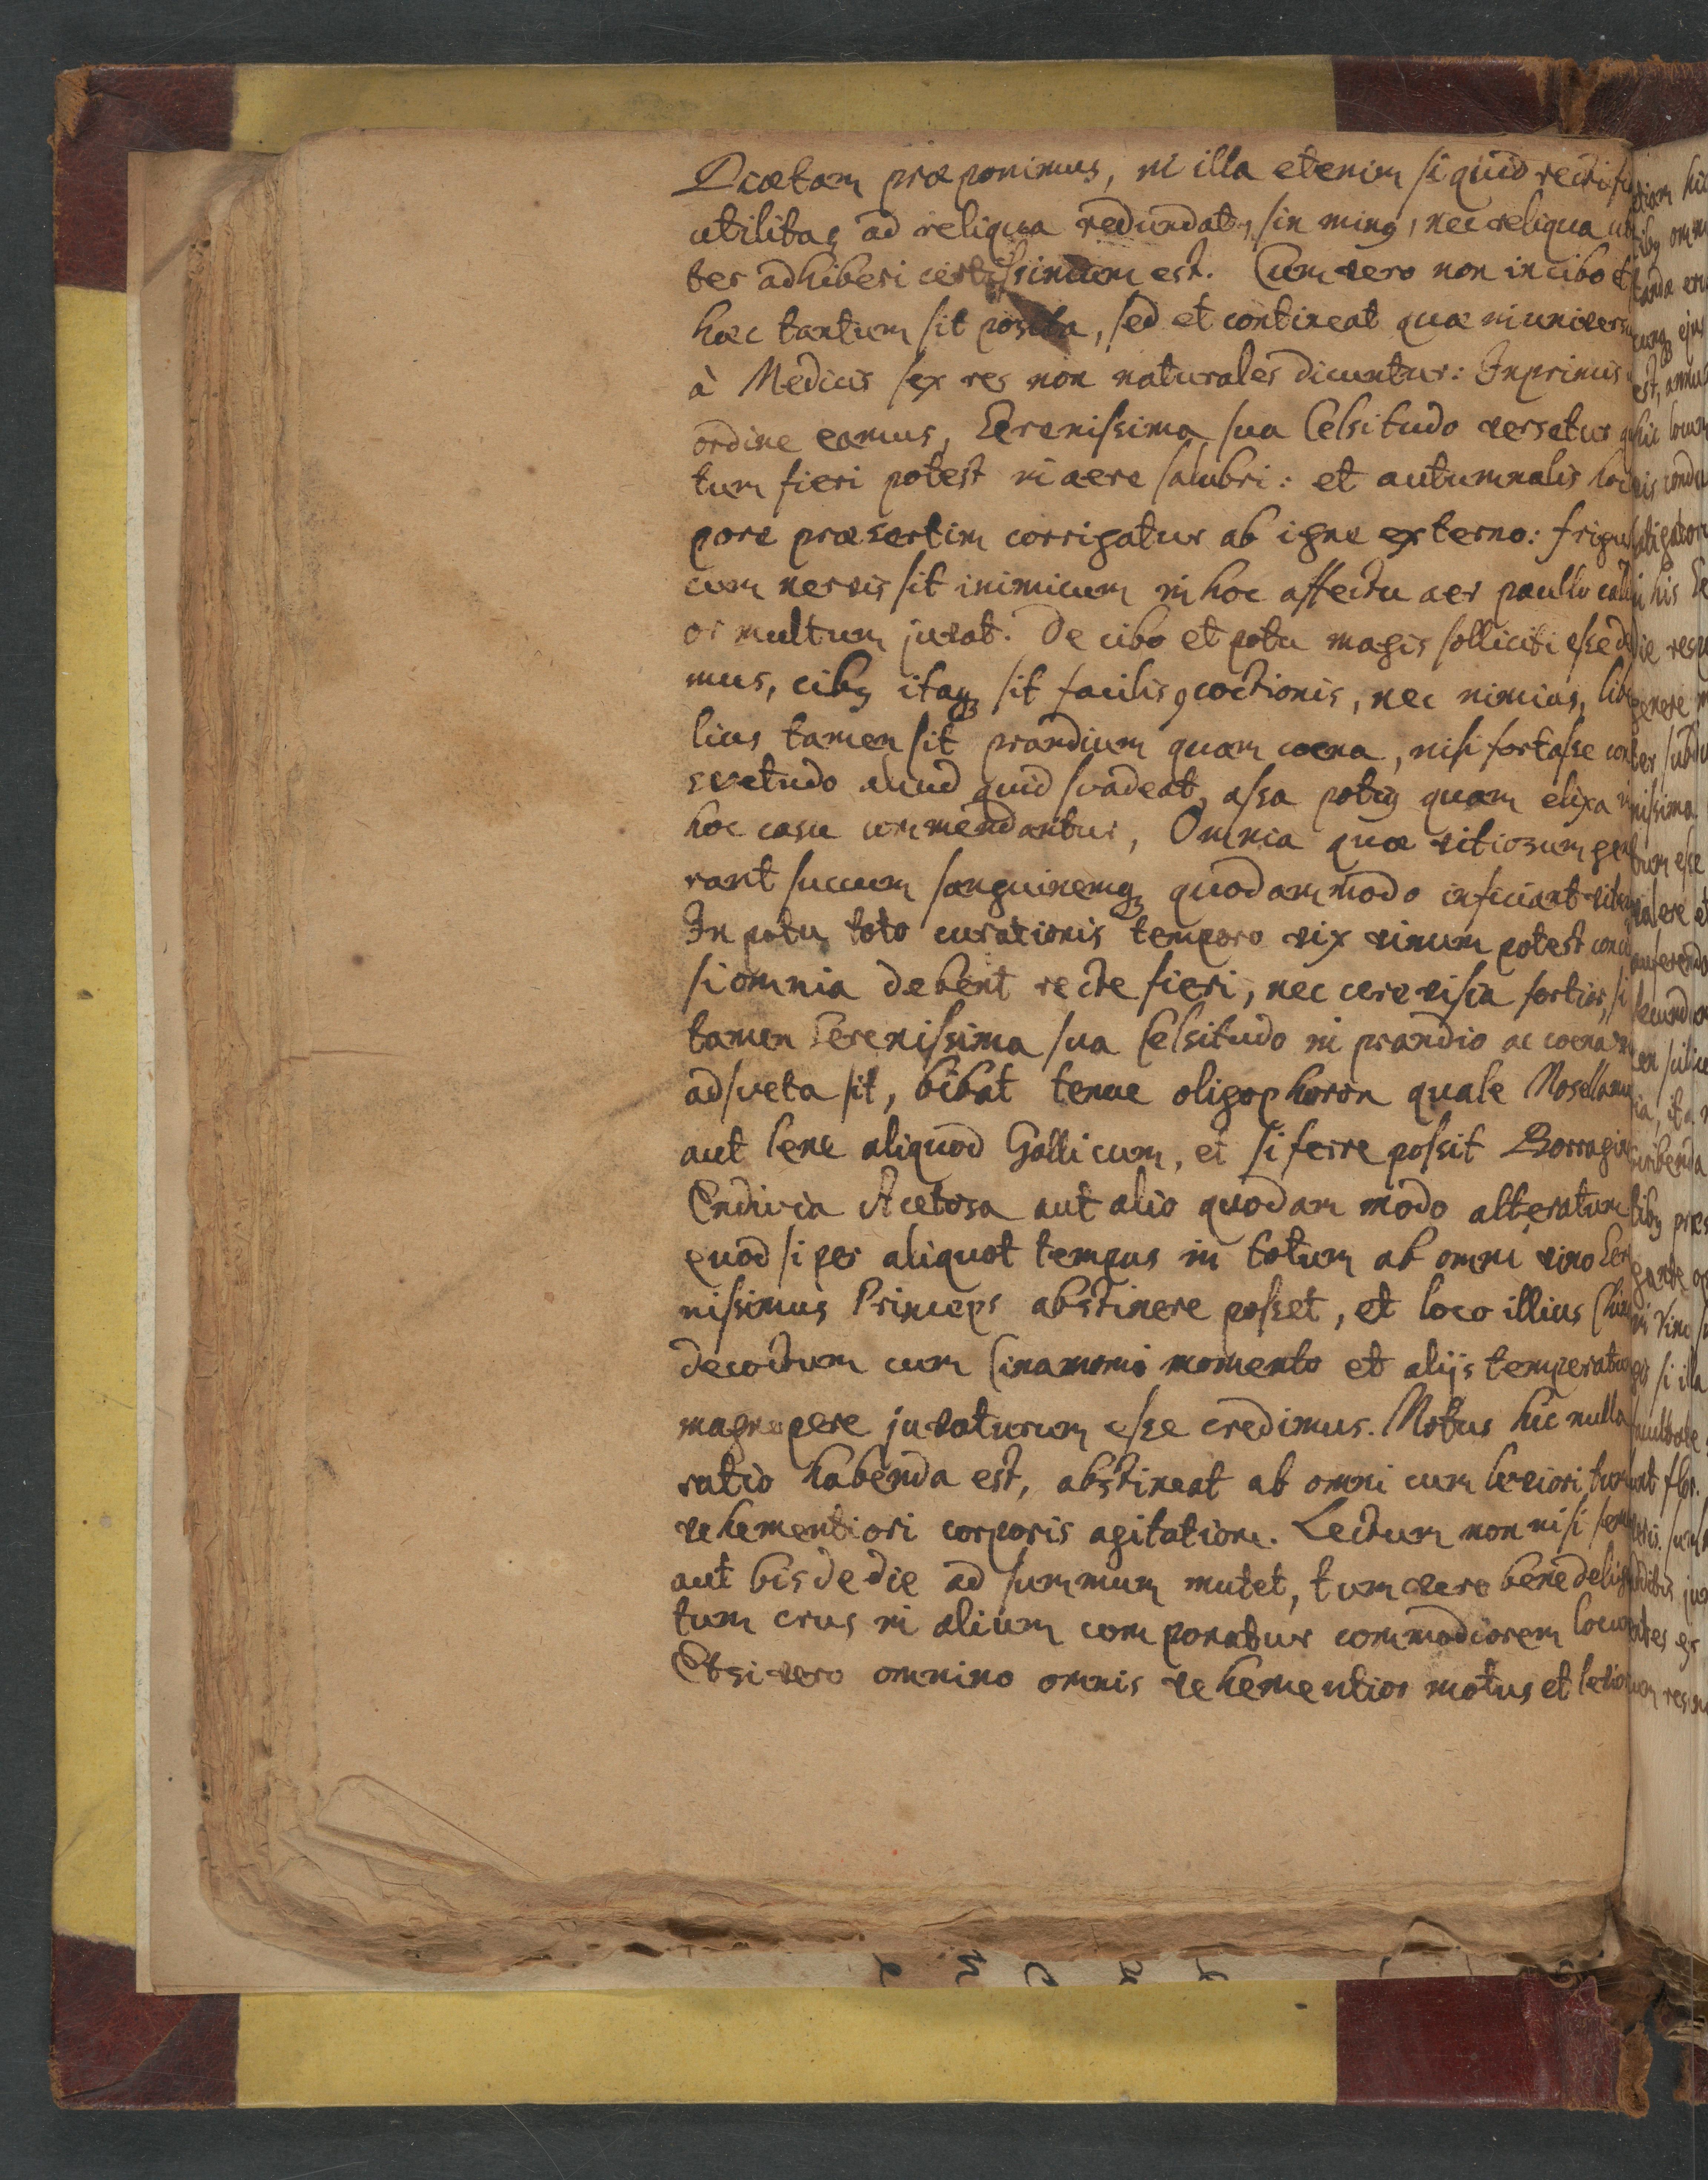 Diætam præponimus, in illa etenim si quid recte fi
utilitas ad reliqua redundat, sin minus, nec reliqua uti
ter adhiberi certissimum est. Cum vero non in cibo et
hæc tantum sit posita, sed et contineat quæ in universu
à Medicis sex res non naturales dicuntur: Inprimis
ordine eamus, Serenissima sua Celsitudo versetur q
tum fieri potest in aere salubri: et autumnalis hoc
pore præsertim corrigatur ab igne externo: frigus
cum nervis sit inimicum in hoc affectu aer paullo calidi
or multum juvat. De cibo et potu magis solliciti esse de
mus, cibus itaque sit facilis coctionis, nec nimius, libe
lius tamen sit prandium quam coena, nisi fortasse con
svetudo aliud quid svadeat, assa potius quam elixa in
hoc casu commendantur, Omnia quæ vitiosum gene
rant succum sanguinemque quodammodo inficiant
In potu toto curationis tempore vix vinum potest conce
si omnia debent recte fieri, nec cerevisia fortior, si
tamen Serenissima sua Celsitudo in prandio ac coena
adsveta sit, bibat tenue oligophoron quale Mosellanum
aut lene aliquod Gallicum, et si ferre possit Borragin
Endivia Acetosa aut alio quodam modo alteratum
quod si per aliquot tempus in totum ab omni vino Sere
nissimus Princeps abstinere posset, et loco illius Chin
decoctum cum Cinamomi momento et aliis temperatum
magnopere juvaturum esse credimus. Motus hic nulla
ratio habenda est, abstineat ab omni cum leviori tum
vehementiori corporis agitatione. Lectum non nisi semel
aut bis de die ad summum mutet, tum vero bene deliga
tum crus in alium componatur commodiorem locum
Etsi vero omnino omnis vehementior motus et levior